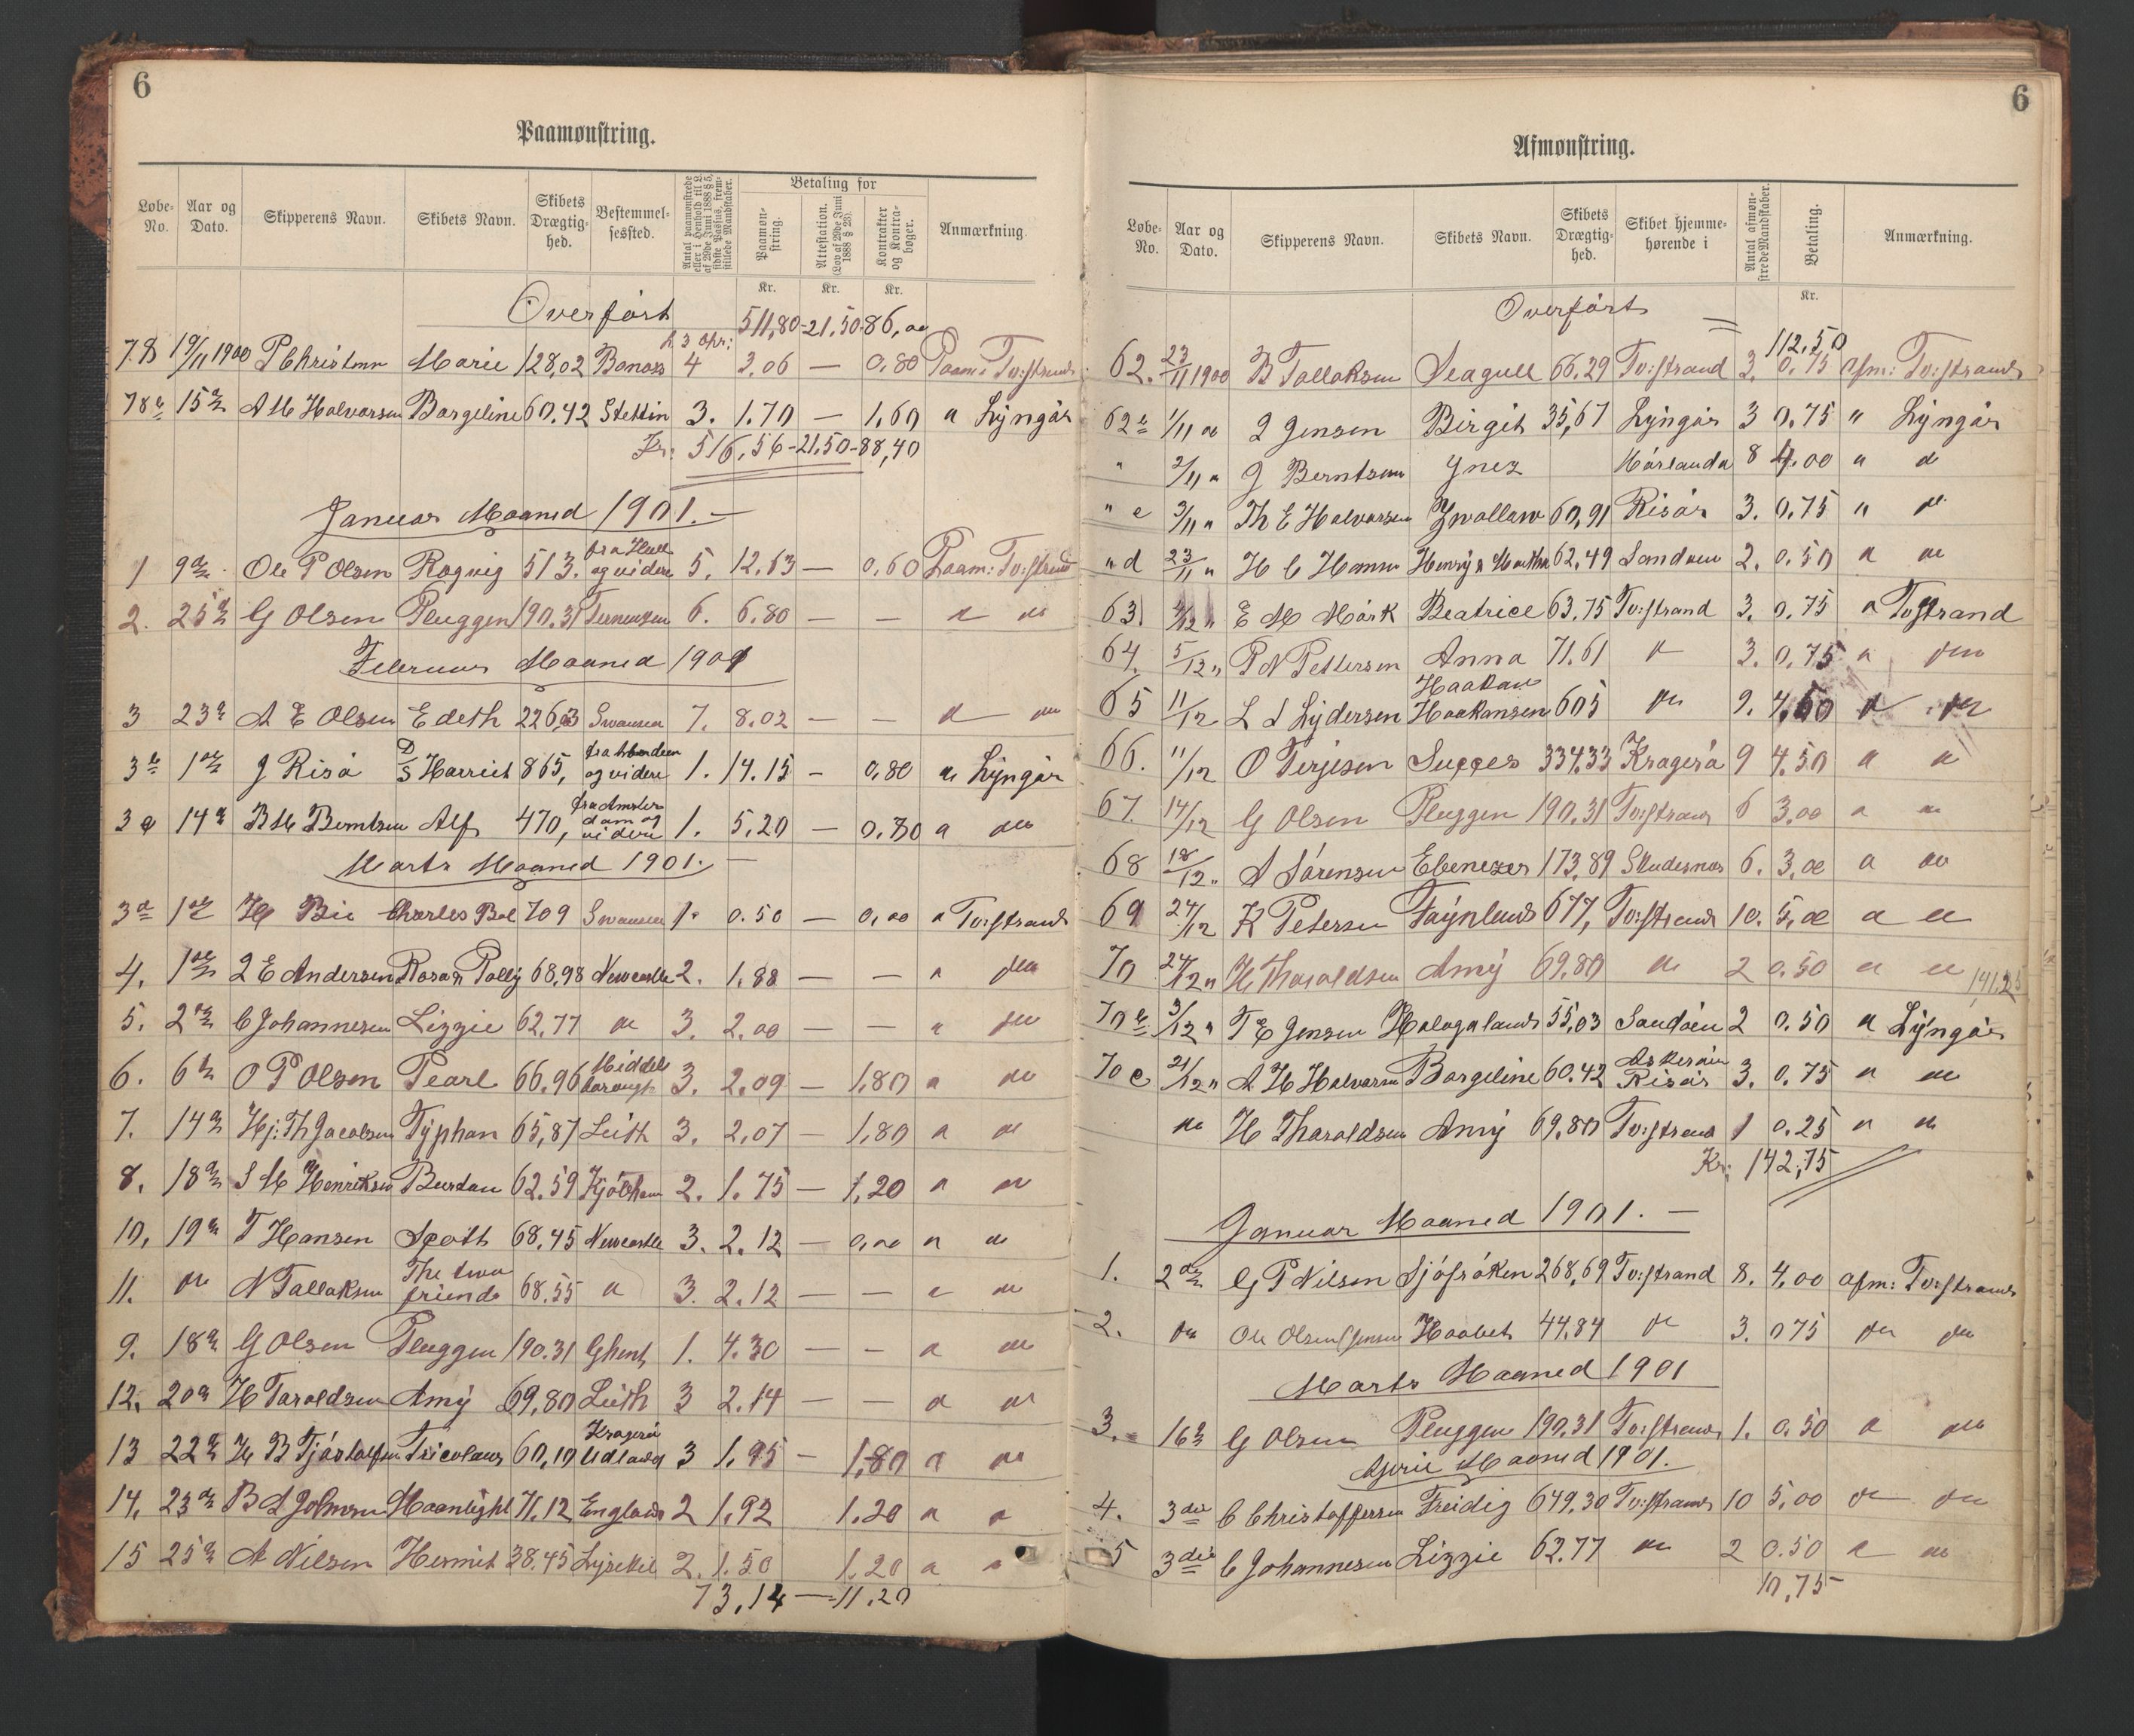 6
Paamønstring.
Løbe-No. Aar og Dato. Skipperens Navn. Skibets Navn. Skibets Drægtighed. Bestemmelsessted. Antal paamønstrede eller i Henhold til L. af 29de Juni 1888 § 5, sidste Passus, fremstillede Mandskaber. Betaling for Paamønstring. Attestation. (Lov af 29de Juni 1888 § 23). Kontrakter og Kontrabøger. Anmærkning
Kr. Kr. Kr.
Overført 511,80 - 21,50 - 86,00
78 19/11 1900 P Christensen Marie 128,02 4 3.06 — 0,80 Paam: Tv:strand
78b 15de A M Halvorsen Bargeline 60.42 Stettin 3. 1.70 — 1,60 " Lyngør
Kr: 516,56 - 21,50 - 88,40
Januar Maaned 1901. —
1 9de Ole P Olsen Ragvig 513. fra Hull og videre 5. 12.63 — 0,60 Paam: Tv:strand
2. 25de G Olsen Pluggen 190.31 6. 6,80 — — " "
Februar Maaned 1901
3 23de A E Olsen Edeth 226,3 Swansea 7. 8.02 — — " "
3b 1ste J Risø D/S Harriet 865, fra Aberdeen og videre 1. 14.15 — 0,80 " Lyngør
3c 14de B M Berntsen Alf 470, fra Amsterdam og videre 1. 5.20 — 0,30 " "
Marts Maaned 1901. —
3d 1ste H Bie Charles Bal 709 Swansea 1. 0.50 — 0,00 " Tv:strand
4. 1ste E Andersen Rosa & Polly 68,98 Newcastle 2. 1.88 — — " "
5. 2den C Johannesen Lizzie 62.77 " 3. 2.00 — — " "
6. 6te O P Olsen Pearl 66.96 Middelsborough 3. 2.09 — 1,80 " "
7. 14de Hj: Th Jacobsen Typhon 65,87 Leith 3. 2,07 — 1,80 " "
8. 18de S M Henriksen 62.59 2. 1.75 — 1,20 " "
10, 19de T Hansen Scott 68,45 Newcastle 3. 2.12 — 0,00 " "
11. " N Tallaksen The two friends 68.55 " 3. 2.12 — — " "
9. 18de G Olsen Pluggen 190.31 Ghent, 1. 4.30 — — " "
12. 20de H Taraldsen Amy 69,80 Leith 3 2.14 — — " "
13 22de H B 60,10 Kragerø Udland 3 1,95 — 1,80 " "
14. 23de B A Johnsen Moonlight 71,12 England 2 1,92 1.20 " "
15 25de A Nilsen Hermit 38.45 Lysekil 2. 1.50 1.20 " "
73,14 — 11.20
6
Afmønstring.
Løbe-No. Aar og Dato. Skipperens Navn. Skibets Navn. Skibets Drægtighed. Skibet hjemmehørende i Antal afmønstrede Mandskaber. Betaling. Anmærkning.
Kr.
Overført = 112,50
62. 23/11 1900 B Tallaksen Seagull 66.29 Tv:strand 3. 0.75 afm: Tv:strand
62b 1/11 " Jensen Birgit 35,67 Lyngør 3 0,75 " Lyngør
" 2/11 " J Berntsen Ynez 8 4.00 " "
" c 3/11 " Th E Halvorsen Swallow 60,91 Risør 3. 0,75 " "
" d 23/11 " H C Hansen Henry & Martha 62,49 Sandøen 2. 0.50 " "
63 E M Mørk Beatrice 63.75 Tv:strand 3. 0.75 " Tv:strand
64. 5/12 " P N Pettersen Anna 71.61 " 3. 0,75 " "
65 11/12 L A Lydersen Haakan Haakansen 605 " 9. 4,50 " "
66. 11/12 O Terjesen Succes 334.33 Kragerø 9 4.50 " "
67. 14/12 G Olsen Pluggen 190.31 Tv:strand 6 3,00 " "
68 18/12 " A Sørensen Ebenezer 173,89 Skudesnæs 6. 3,00 " "
69 24/12 K Petersen 677, Tv:strand 10. 5,00 " "
70 24/12 " H Tharaldsen Amy 69.80 " 2 0.50 " " 141,25
70b 3/12 " T E Jensen Halogaland 55,03 Sandøen 2 0.50 " Lyngør
70c 21/12 " A H Halvorsen Bargeline 60.42 Askerøen Risør 3. 0.75 " "
" H Tharaldsen Amy 69,80 Tv:strand 1 0.25 " "
Kr: 142,75
Januar Maaned 1901. —
1. 2den G P Nilsen Sjøfrøken 268,69 Tv:strand 8. 4,00 afm: Tv:strand
2. " Ole Olsen Jensen Haabet 44.84 " 3. 0 75 " "
Marts Maaned 1901
3. 16de G Olsen Pluggen 190.31 Tv:strand 1. 0.50 " "
April Maaned 1901.
4. 3die C Christoffersen Freidig 649,30 Tv:strand 10 5,00 " "
5 3die C Johannesen Lizzie 62.77 " 2 0.50 " "
10,75